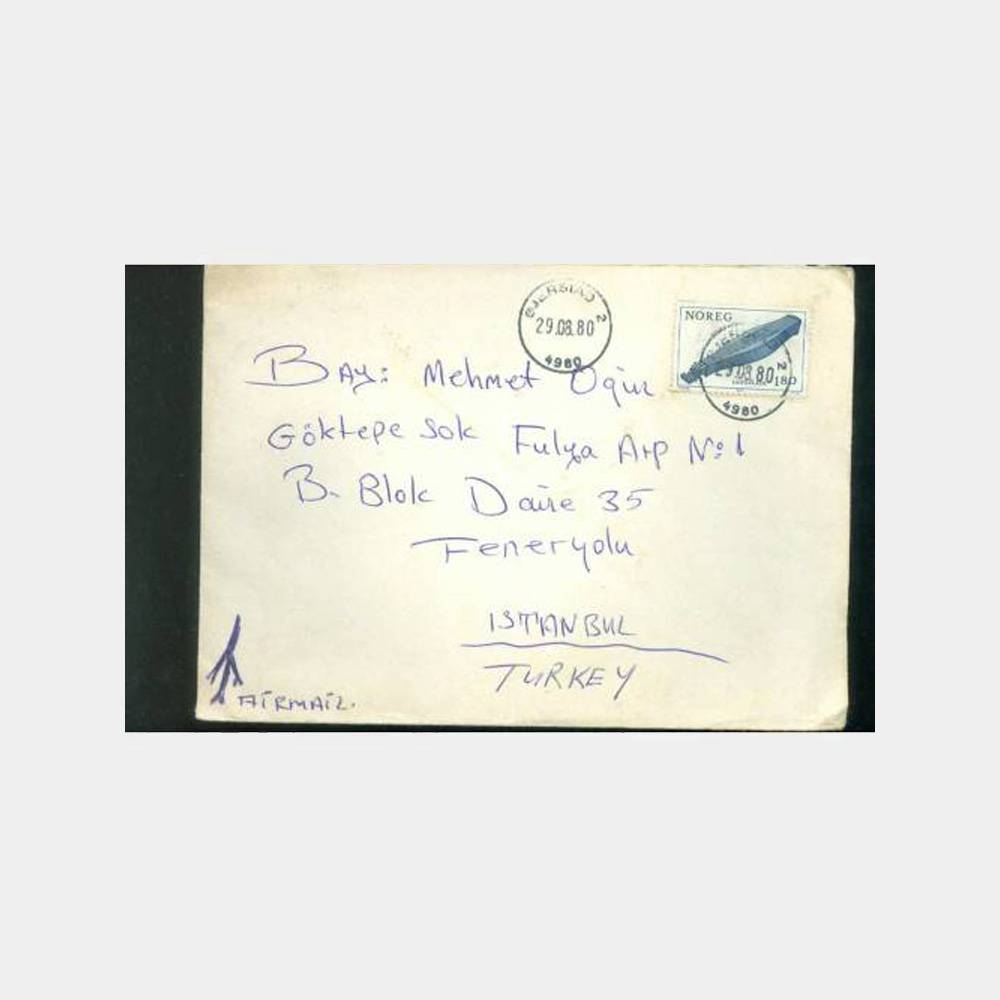 GJERSTAD 2
29.08.80
4980
NOREG
29.08.80
2
180
4980
BAY: Mehmet Ogur
Göktepe Sok Fulya Arp No: 1
B. Blok Daire 35
Feneryolu
ISTANBUL
TURKEY
AİRMAİL.